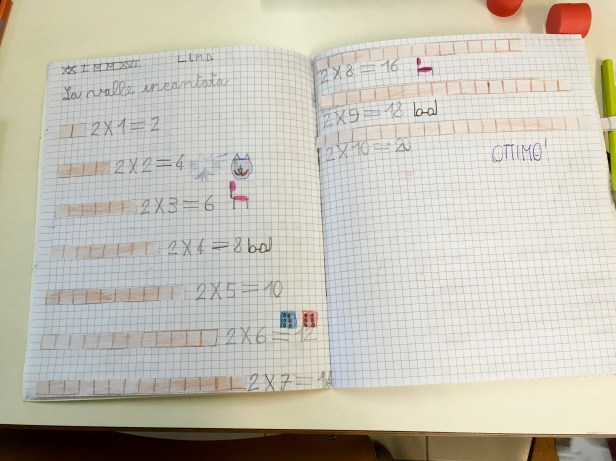 XXI MMXVI
La valle incantata
2X1=2
2X2=4
2X3=6
2X4=8
2X5=10
2X6=12
2X7=14
2X8=16
2X9=18
2X10=20
OTTIMO!